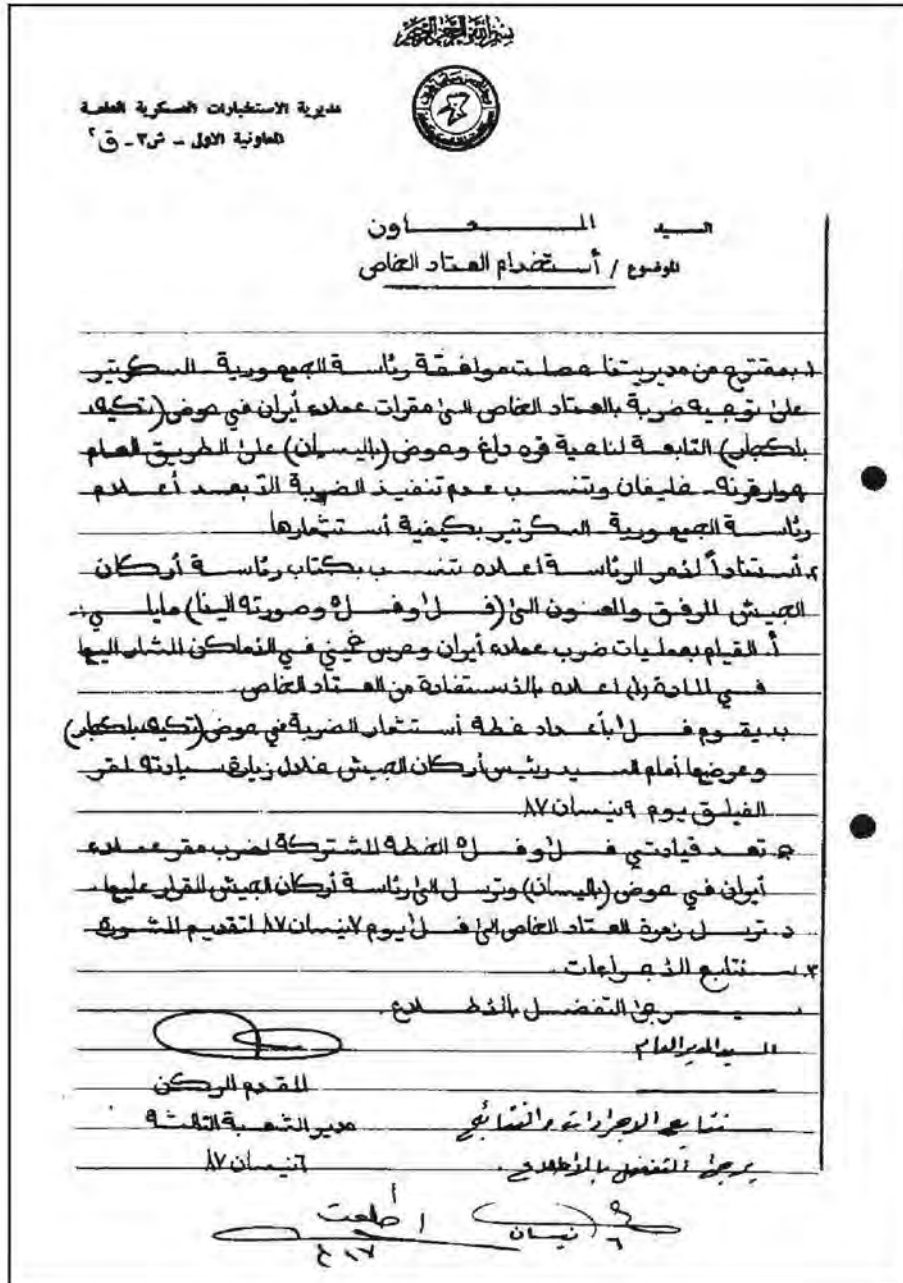 بسم الله الرحمن الرحيم
مديرية الاستخبارات العسكرية العامة
المعاونية الاولى - ش٣ - ق٢
السيد المعاون
الموضوع / أستخدام العتاد الخاص
١. بمقترح من مديريتنا حصلت موافقة رئاسة الجمهورية السكرتير
على توجيه ضربة بالعتاد الخاص الى مقرات عملاء أيران في حوض (تكيه
بلكجار) التابعة لناحية قره داغ وحوض (باليسان) على الطريق العام
هوارقرنه - خليفان وتنسب عدم تنفيذ الضربة الا بعد أعلام
رئاسة الجمهورية السكرتير بكيفية أستثمارها.
٢. أستناداً لأمر الرئاسة اعلاه تنسب بكتاب رئاسة أركان
الجيش المرفق والمعنون الى (فل١ وفل٥ وصورته الينا) مايلي :
أ. القيام بعمليات ضرب عملاء أيران وحرس خميني في الأماكن المشار اليها
في المادة (١) اعلاه بالاستفادة من العتاد الخاص
ب. يقوم فل١ بأعداد خطة أستثمار الضربة في حوض (تكيه بلكجار)
وعرضها أمام السيد رئيس أركان الجيش خلال زيارة سيادته لمقر
الفيلق يوم ٩ نيسان ٨٧
ج. تعد قيادتي فل١ وفل٥ الخطة المشتركة لضرب مقر عملاء
أيران في حوض (باليسان) وترسل الى رئاسة أركان الجيش للقرار عليها.
د. ترسل زمرة العتاد الخاص الى فل١ يوم ٧ نيسان ٨٧ لتقديم المشورة
٣. سنتابع الاجراءات.
يرجى التفضل بالاطلاع.
السيد المدير العام
المقدم الركن
نتابع الاجراءات والنتائج
مدير الشعبة الثالثة
يرجى التفضل بالاطلاع.
٦ نيسان ٨٧
٦ نيسان
أطلعت